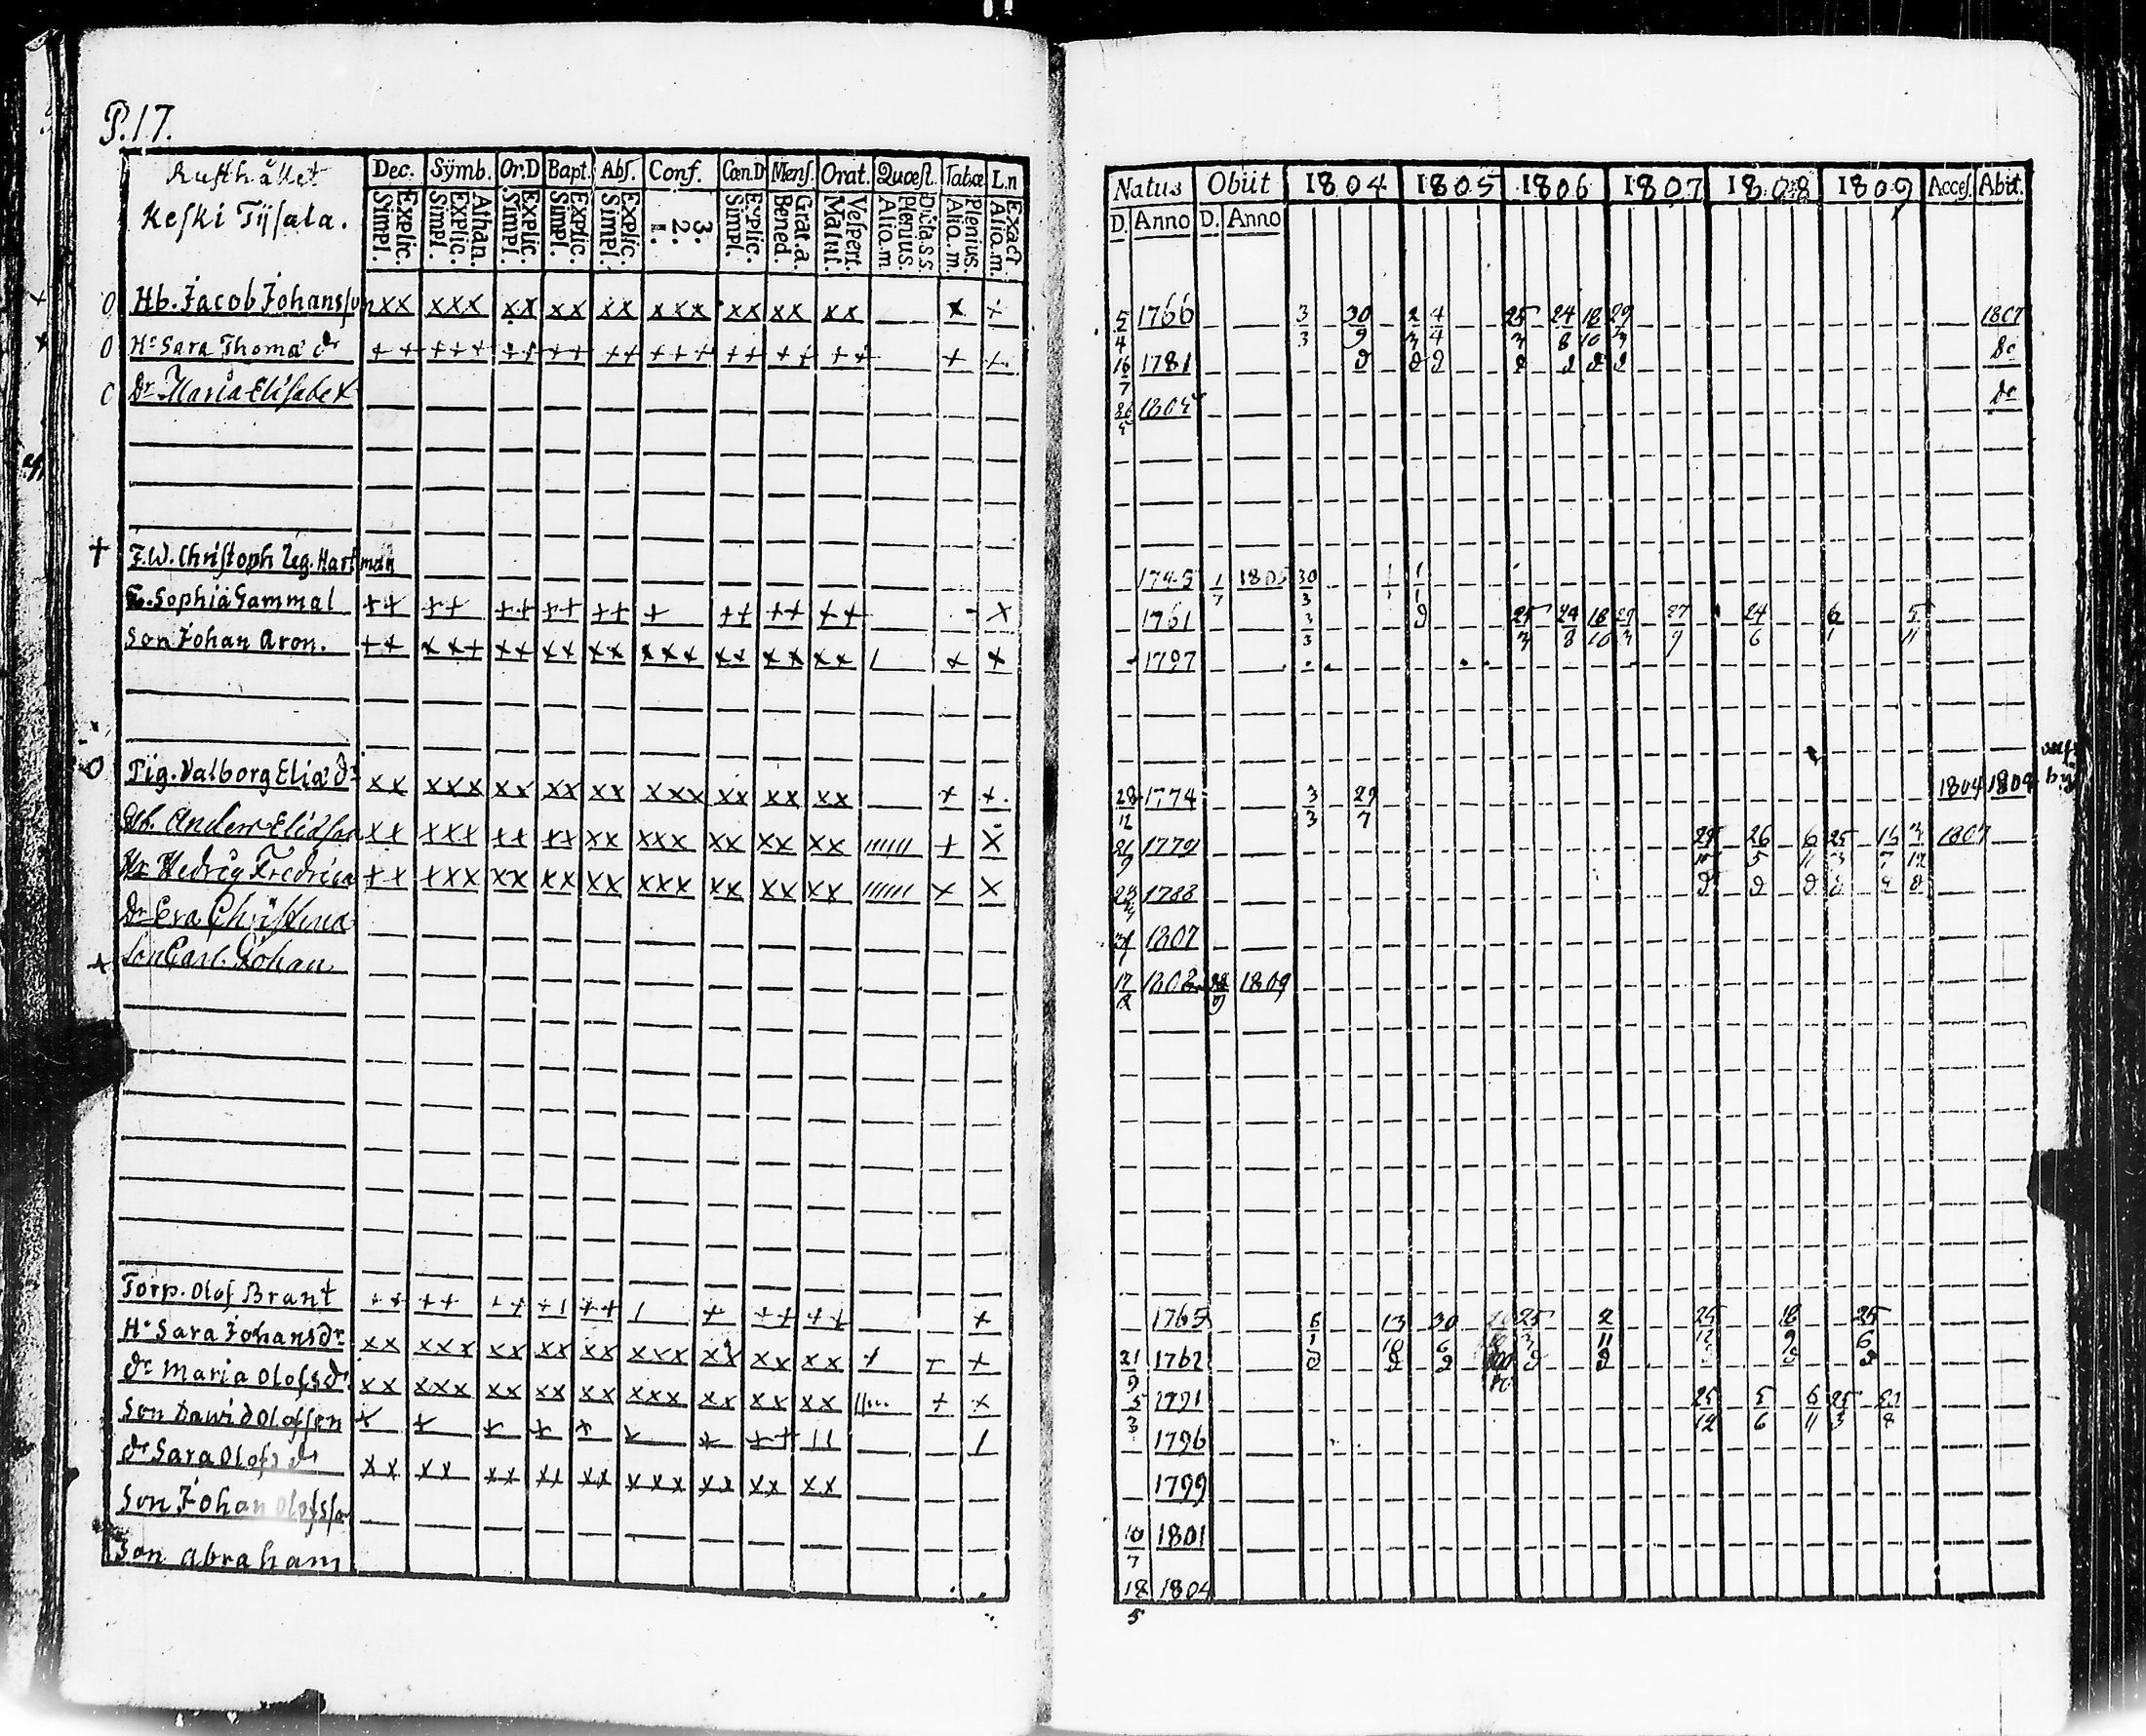 P.17.
Rusthållet
Keski Tÿsala.
Dec. Sÿmb. Or.D Bapt. Abs. Conf. Cœn.D Mens. Orat. Quæst. Tabæ L.n
Explic. Simpl. Athan. Explic. Simpl. Explic. Simpl. Explic. Simpl. Explic. Simpl. 3. 2. 1. Explic. Simpl. Grat.a. Bened. Vespert. Matut. Dicta.s.s. Plenius. Aliq.m. Plenius. Aliq.m. Exact Aliq.m.
Natus Obiit 1804 1805 1806 1807 1808 1809 Acces. Abit.
D. Anno D. Anno
O Hb. Jacob Johansson xx xxx xx xx xx xxx xx xx xx x + 5/4 1766 3/3 30/9 2/3 4/4 25/3 24/8 18/10 29/3 1807
O Hu Sara Thomæ dr ++ +++ ++ ++ ++ +++ ++ ++ ++ + + 16/7 1781 Do
Dr. Maria Elisabet 1804 do
+ F.W. Christoph Zeg. Hartman 1745 1/7 1805 30/3
E. Sophia Gammal ++ ++ ++ ++ ++ + ++ ++ ++ x 1761 3/3 25/3 24/8 18/10 29/3 27/9 24/6 6/1 5/11
Son Johan Aron. ++ xx+ ++ xx xx xxx xx xx xx / x x 1797
Pig. Valborg Eliæ dr xx xxx xx xx xx xxx xx xx xx + +. 28/12 1774 3/3 29/7 1804 1804
Hb. Anders Eliasson xx xxx ++ xx xx xxx xx xx xx ////// + x 21/9 1779 26/5 1807
Hu Hedvig Fredrica ++ +xx xx xx xx xxx xx xx xx ////// x x 1788
Dr Eva Christina 1807
+ Son Carl Johan 1808 1809
Torp. Olof Brant ++ ++ ++ +1 ++ / + ++ ++ + 1765 6/1 13/10 30/6 25/3 2/11 18/9 25/6
Hu Sara Johansdr. xx xxx xx xx xx xxx xx xx xx + + + 21/9 1762
dr Maria Olofsdr. xx xxx xx xx xx xxx xx xx xx + x 5/3 1791 25/12 5/6 6/11 25/3
Son Dawid Olofsson x + + + + x + ++ 11 1 1796
dr Sara Olofsdr xx xx xx xx xx xxx xx xx xx 1799
Son Johan Olofsson 10/7 1801
Son Abraham 18/5 1804